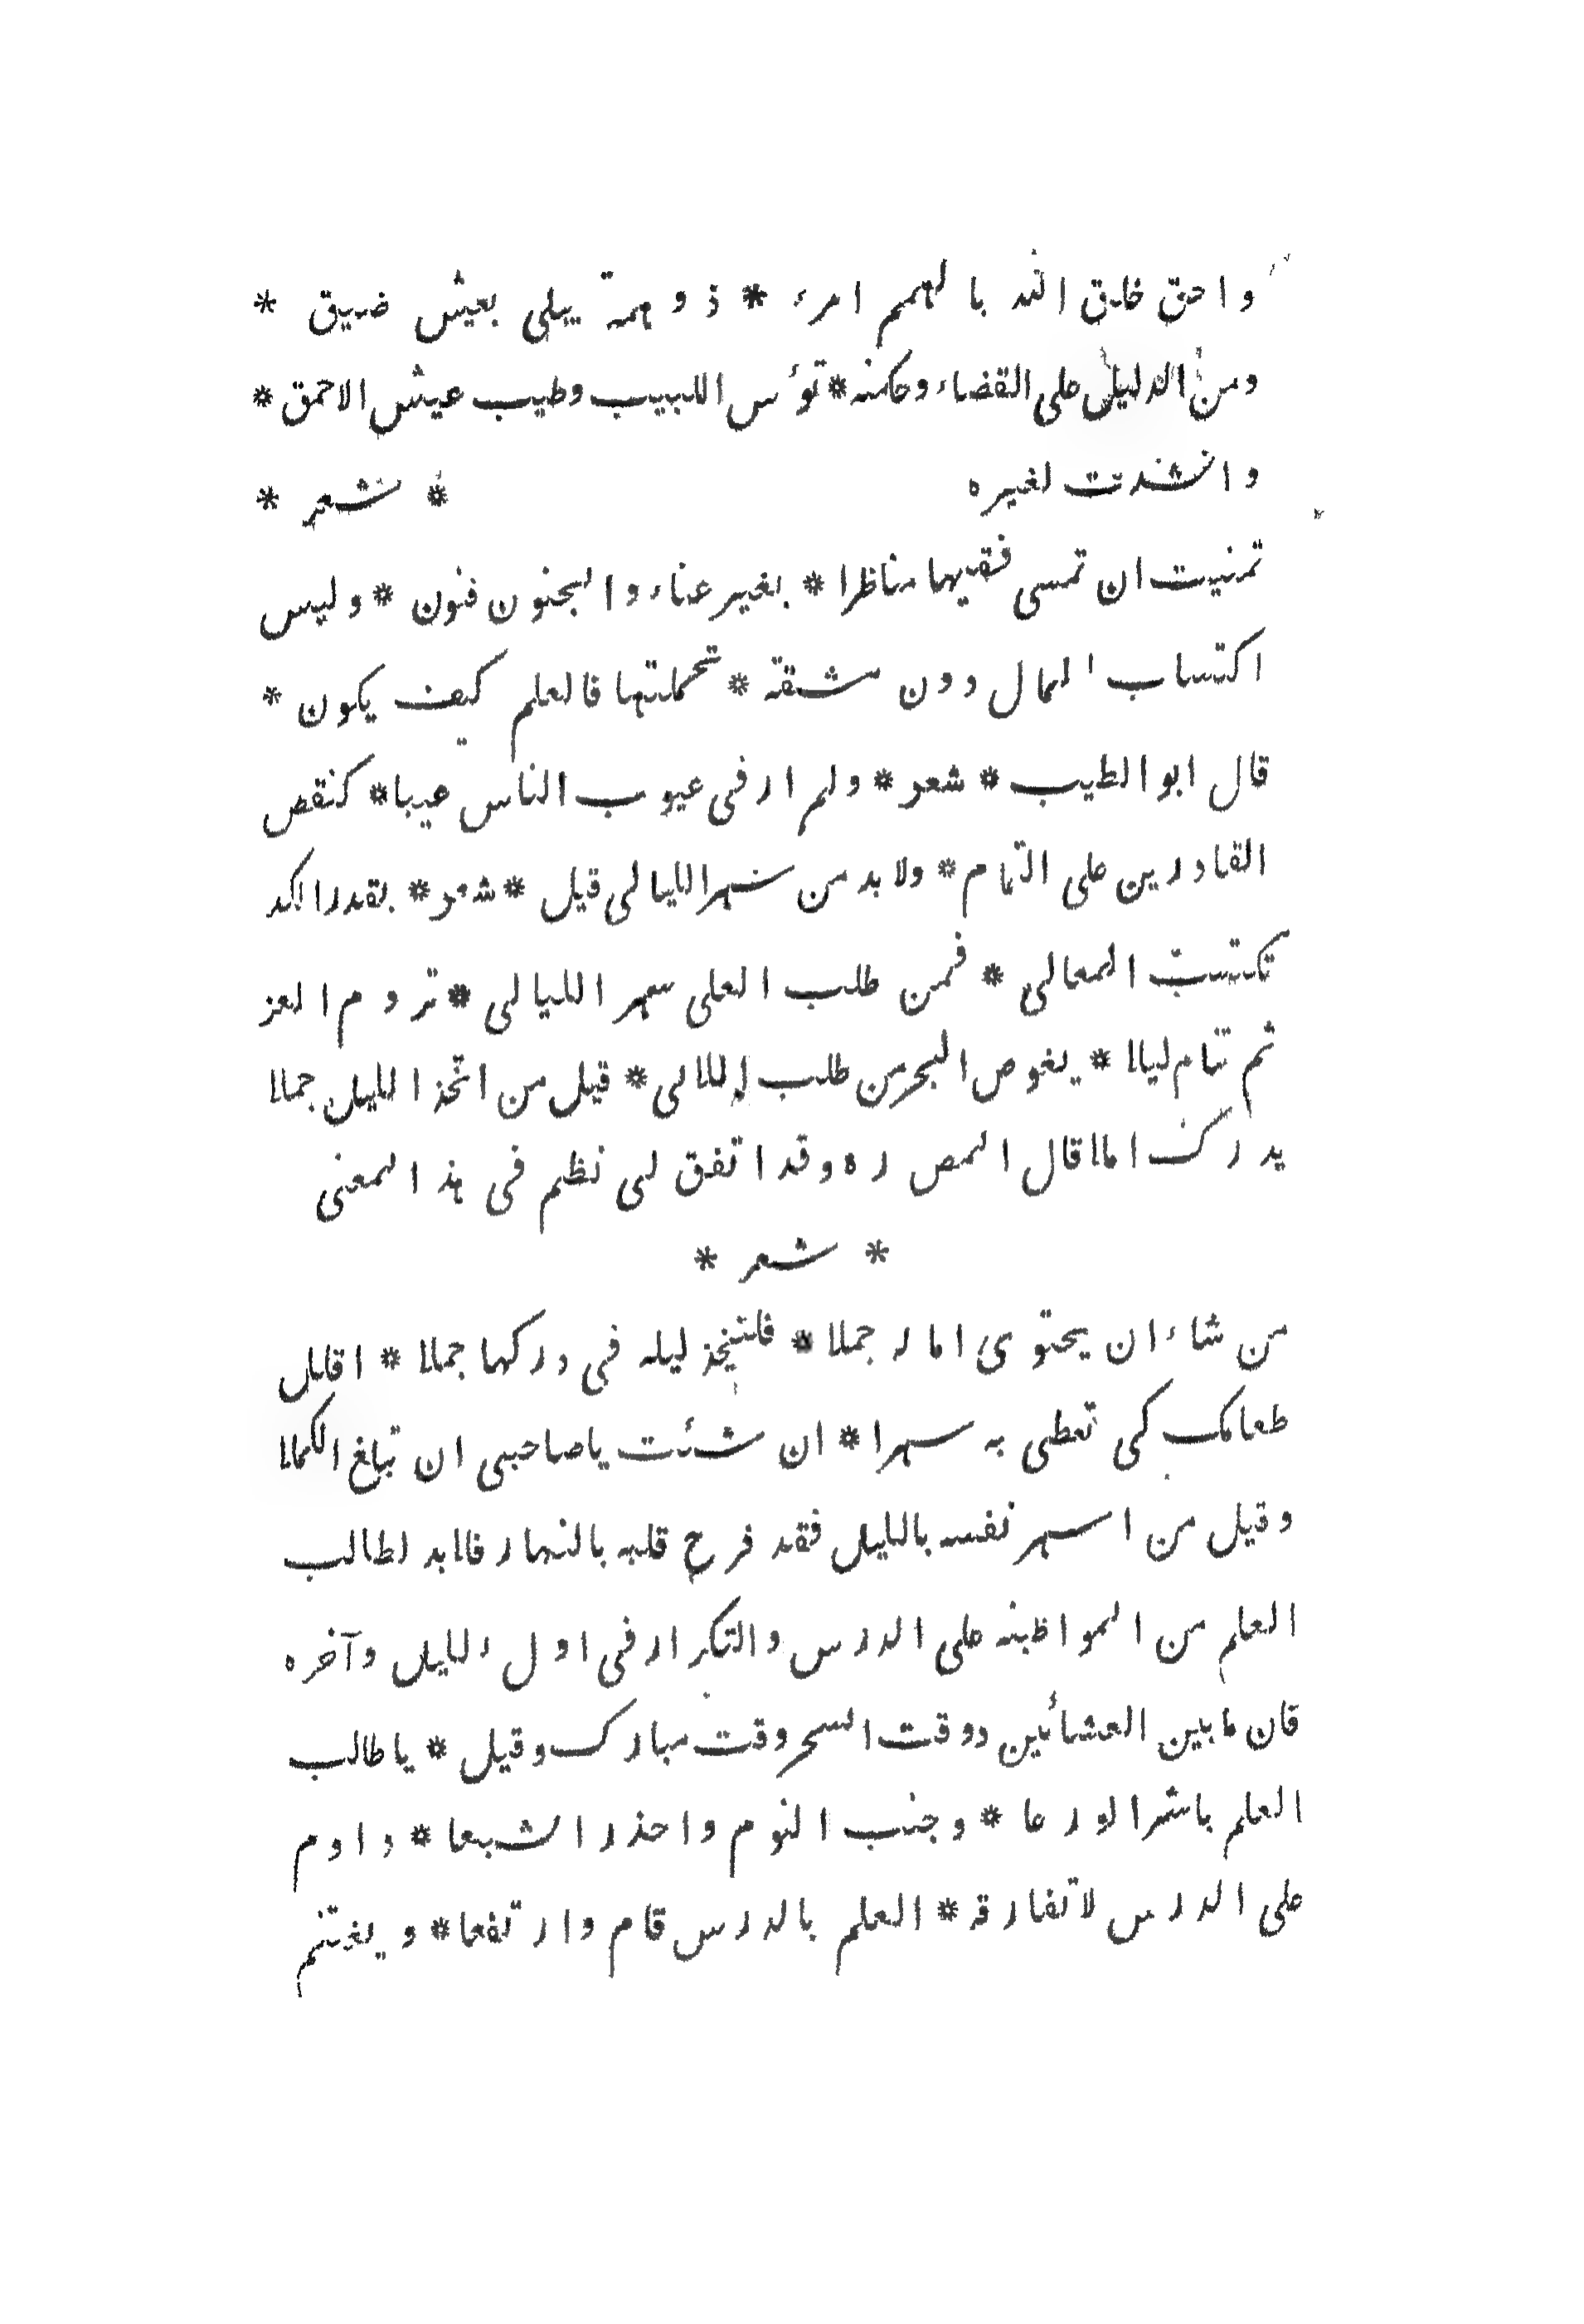 واحق خلق الله بالهمم امرء * ذو همة يبلى بعيش ضيق *
ومن الدليل على القضاء وحكمته * بؤس اللبيب وطيب عيش الاحمق *
وانشدت لغيره * شعر *
تمنيت ان تمسى فقيها مناظرا * بغير عناء والجنون فنون * وليس
اكتساب المال دون مشقة * تحملتها فالعلم كيف يكون *
قال ابو الطيب * شعر * ولم ار فى عيوب الناس عيبا * كنقص
القادرين على التمام * ولا بد من سهر الليالى قيل * شعر * بقدر الكد
تكتسب المعالى * فمن طلب العلى سهر الليالى * تروم العز
ثم تنام ليلا * يغوص البحر من طلب اللالى * قيل من اتخذ الليل جملا
يدرك املا قال المص ره وقد اتفق لى نظم فى هذا المعنى
* شعر *
من شاء ان يحتوى اماله جملا * فليتخذ ليله فى دركها جملا * اقلل
طعامك كى تعطى به سهرا * ان شئت ياصاحبى ان تبلغ الكملا
وقيل من اسهر نفسه بالليل فقد فرح قلبه بالنهار فلابد لطالب
العلم من المواظبة على الدرس والتكرار فى اول الليل وآخره
فان مابين العشائين ووقت السحر وقت مبارك وقيل * ياطالب
العلم باشر الورعا * وجنب النوم واحذر الشبعا * داوم
على الدرس لاتفارقه * العلم بالدرس قام وارتفعا * ويغتنم